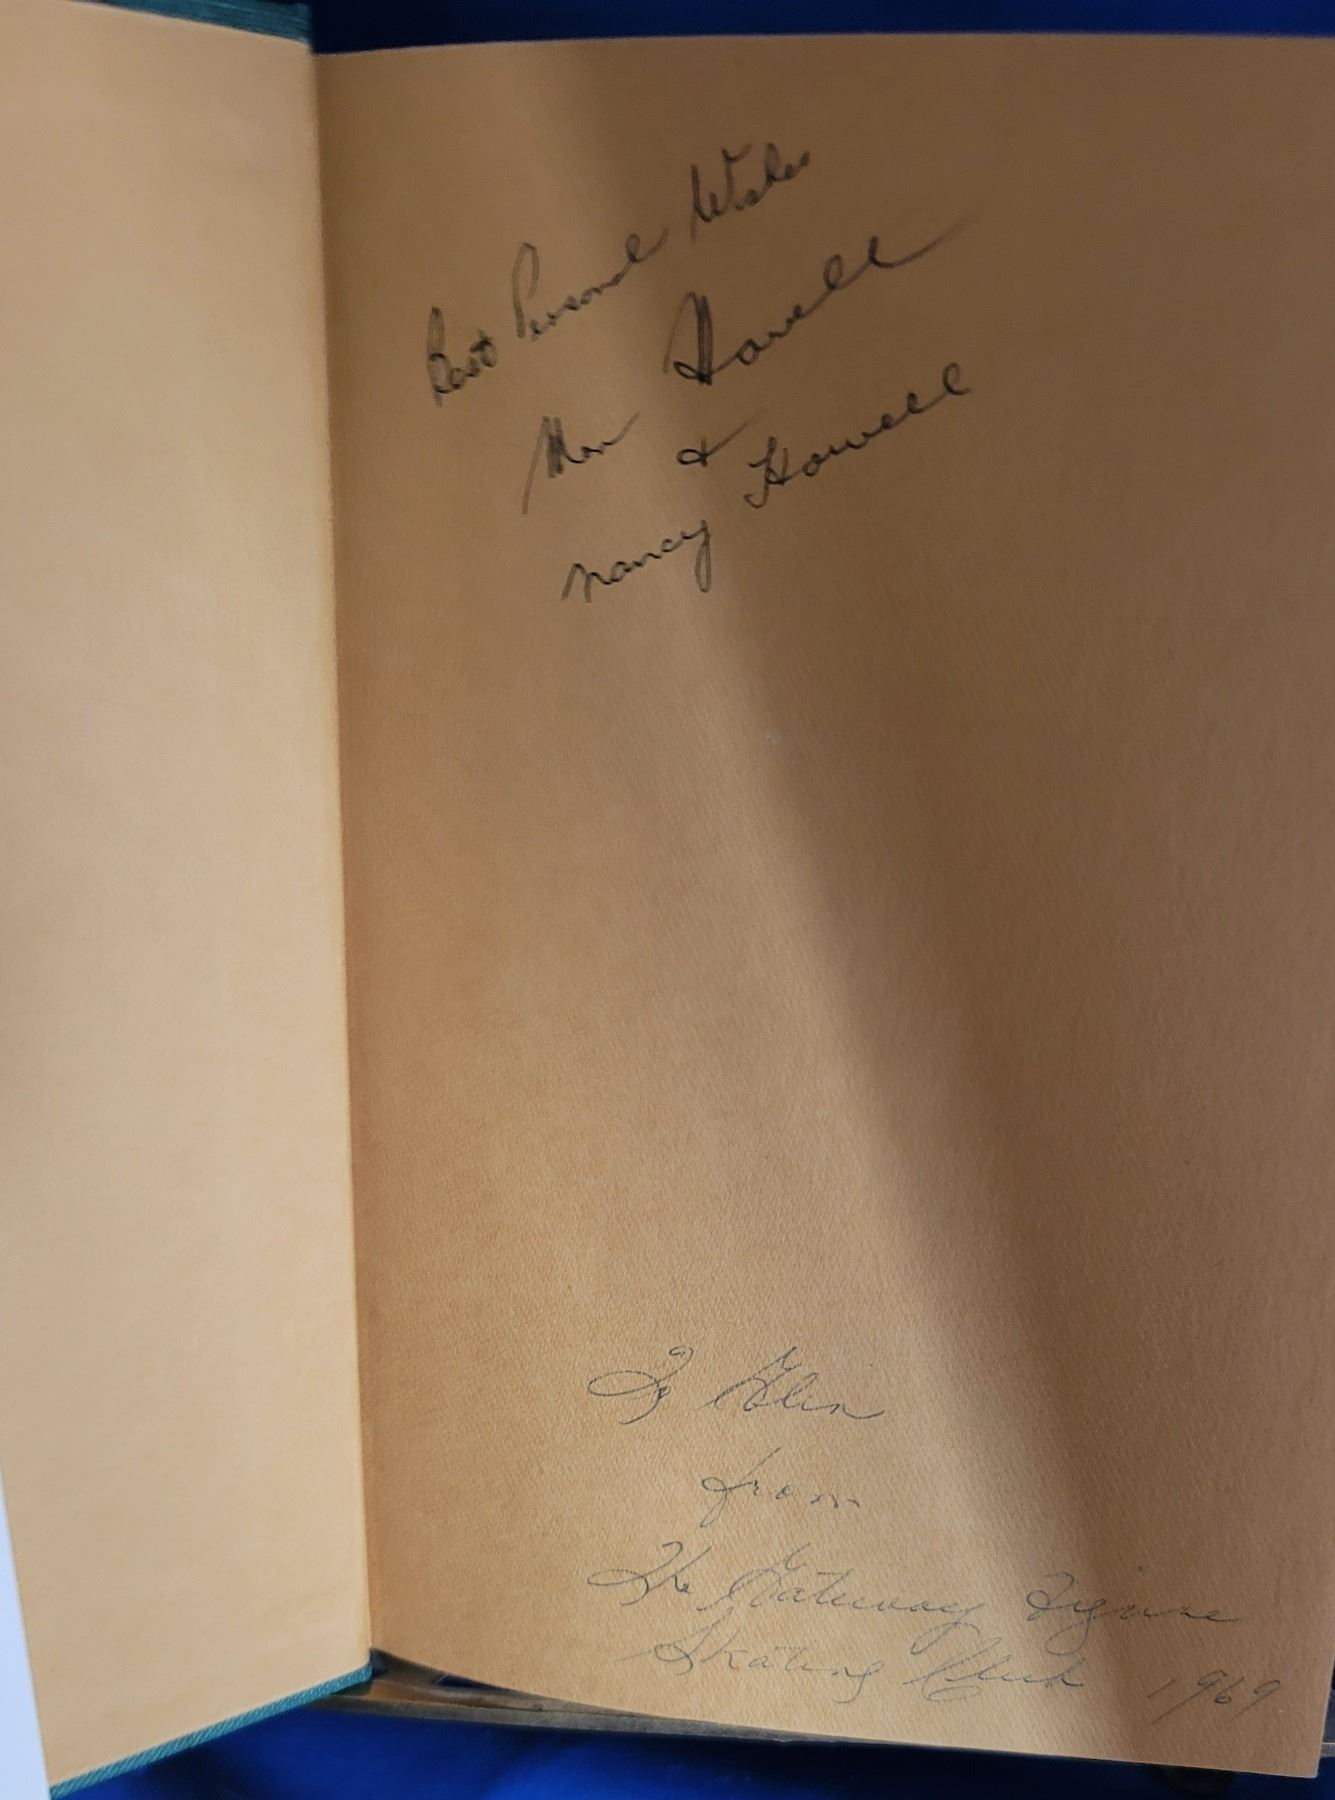 Best Personal Wishes
Howell
&
Nancy Howell
To Glin
from
The Gateway Figure
Skating Club 1969